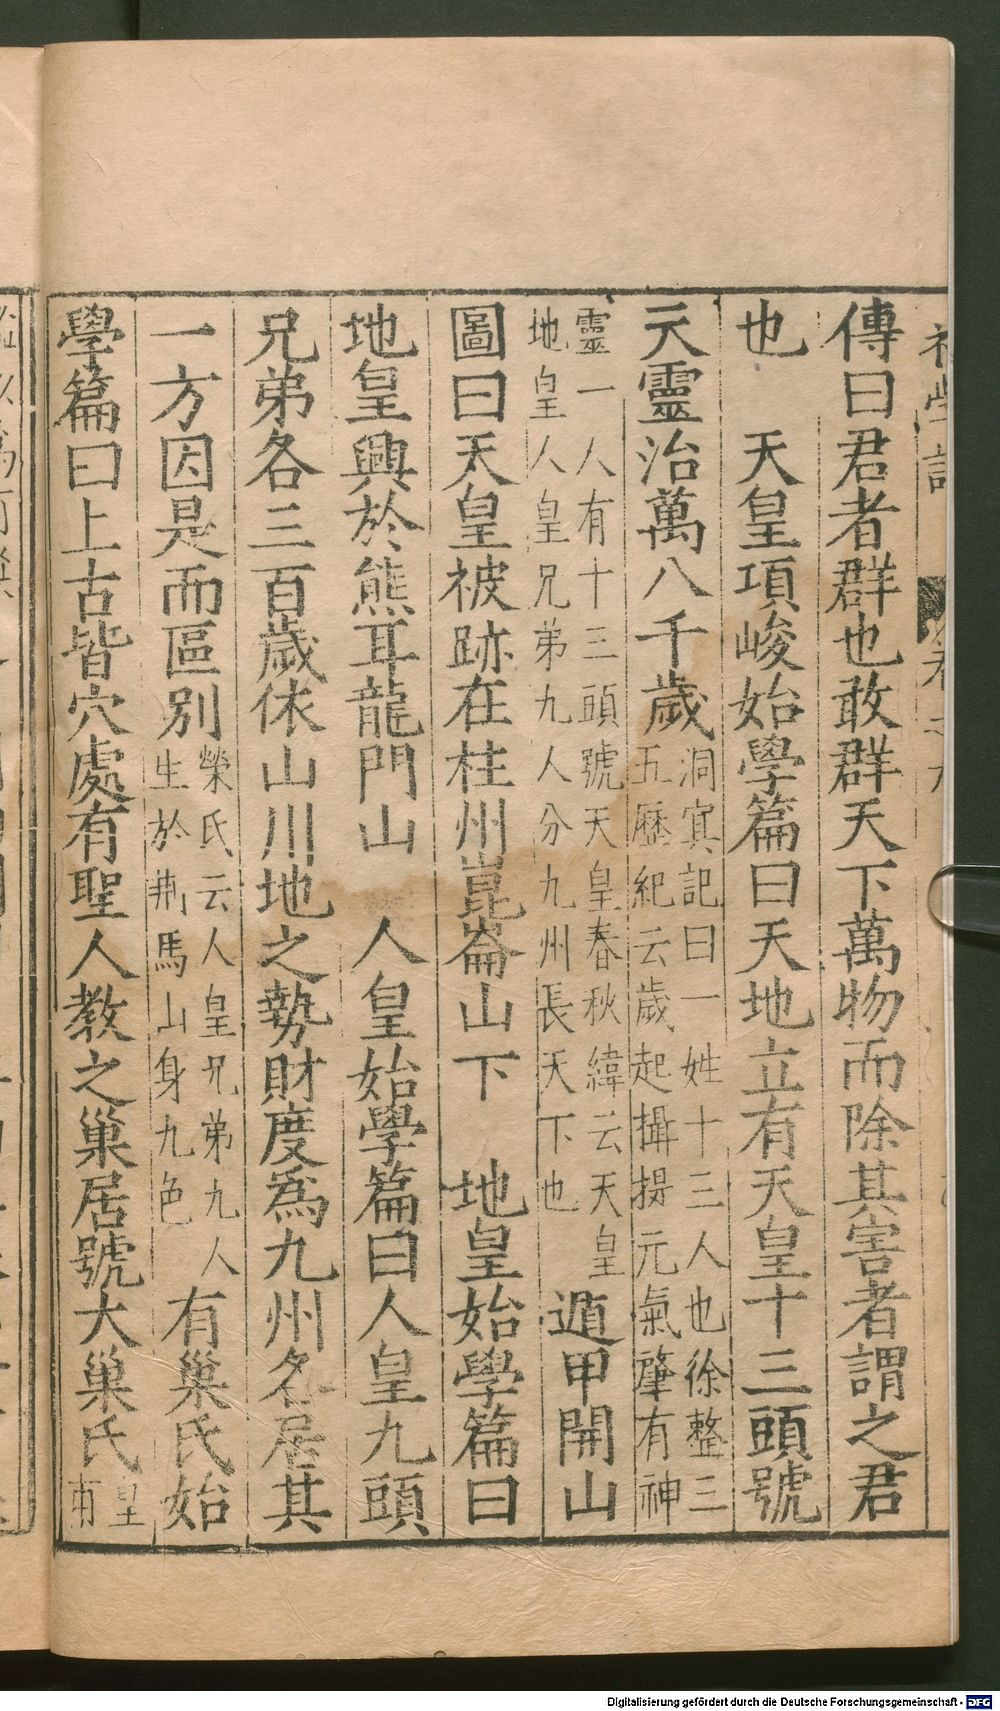 傳曰君者群也敢群天下萬物而除其害者謂之君
也　天皇項峻始學篇曰天地立有天皇十三頭號
天靈治萬八千歲
洞㝠記曰一姓十三人也徐整三
五歷紀云歲起攝提元氣肇有神
靈一人有十三頭號天皇春秋緯云天皇
地皇人皇兄弟九人分九州長天下也
遁甲開山
圖曰天皇被跡在柱州崑崙山下　地皇始學篇曰
地皇興於熊耳龍門山　人皇始學篇曰人皇九頭
兄弟各三百歲依山川地之勢財度爲九州各居其
一方因是而區別
榮氏云人皇兄弟九人
生於荆馬山身九色
有巢氏始
學篇曰上古皆穴處有聖人教之巢居號大巢氏
皇
甫
Digitalisierung gefördert durch die Deutsche Forschungsgemeinschaft - DFG